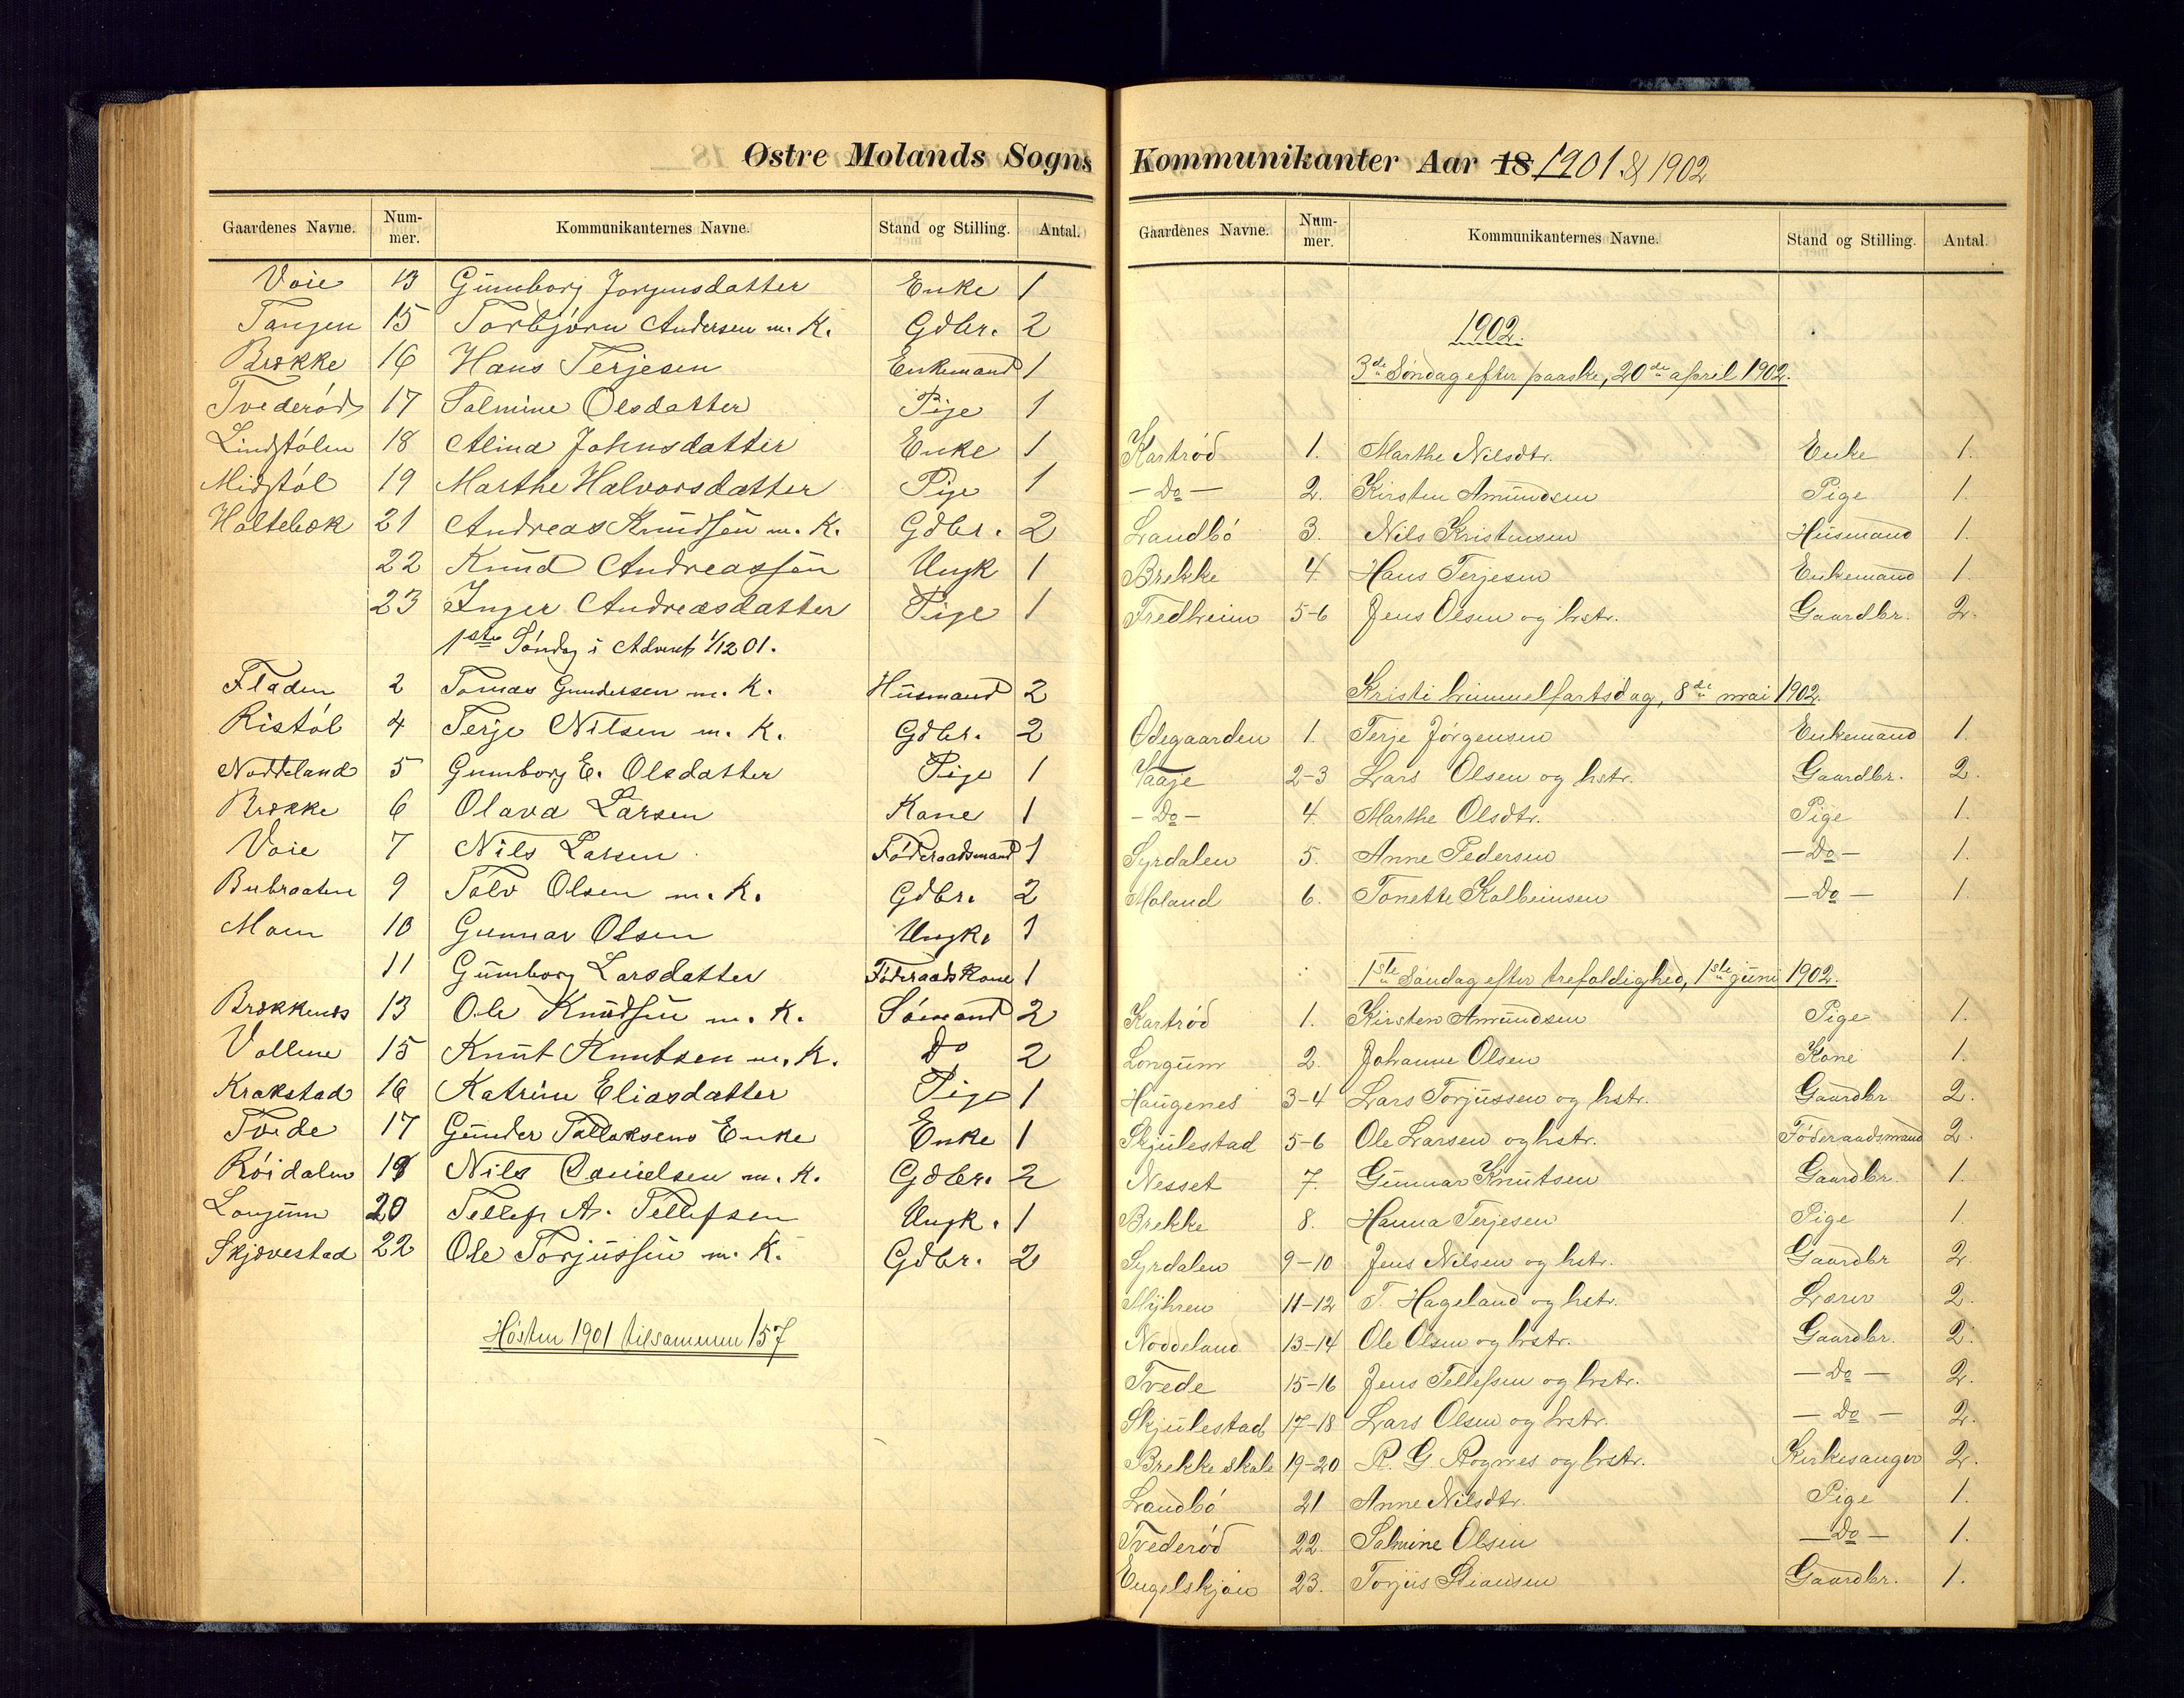 Østre Molands Sogns
Gaardenes Navne. Num-mer. Kommunikanternes Navne. Stand og Stilling. Antal.
Voie 13 Gunborg Jorgensdatter Enke 1
Tangen 15 Torbjörn Andersen m. K. Gdbr. 2
Brække 16 Hans Terjesen Enkemand 1
Tvederöd 17 Salmine Olsdatter Pige 1
Lindstölen 18 Alina Johnsdatter Enke 1
Midstöl 19 Marthe Halvorsdatter Pige 1
Holtebæk 21 Andreas Knudsön m. K. Gdbr. 2
22 Knud Andreassön Ungk 1
23 Inger Andreasdatter Pige 1
1ste Söndag i Advent 1/12 01.
Fladen 2 Tomas Gundersen m. K. Husmand 2
Ristöl 4 Terje Nilsen m. K. Gdbr. 2
Noddeland 5 Gunborg E. Olsdatter Pige 1
Brække 6 Olava Larsen Kone 1
Voie 7 Nils Larsen Föderaadsmand 1
Bubraaten 9 Talv Olsen m. K. Gdbr. 2
Moen 10 Gunnar Olsen Ungk. 1
11 Gunborg Larsdatter Föderaadskone 1
Brækkenes 13 Ole Knudsen m. K. Sömand 2
Vollene 15 Knut Knutsen m. K. Do 2
Krakstad 16 Katrine Eliasdatter Pige 1
Tvede 17 Gunder Tallaksens Enke Enke 1
Röidalen 19 Nils Danielsen m. K. Gdbr. 2
Longum 20 Tellef A. Tellefsen Ungk. 1
Skjövestad 22 Ole Torjussen m. K. Gdbr. 2
Hösten 1901 tilsammen 157
Kommunikanter Aar 18 1901. & 1902
Gaardenes Navne. Num-mer. Kommunikanternes Navne. Stand og Stilling. Antal.
1902.
3de Söndag efter paaske, 20de april 1902.
Kartröd 1. Marthe Nilsdtr. Enke 1.
— Do — 2. Kirsten Amundsen Pige 1.
Landbö 3. Nils Kristensen Husmand 1.
Brekke 4. Hans Terjesen Enkemand 1.
Fredheim 5-6 Jens Olsen og hstr. Gaardbr. 2.
Kristi himmelfartsdag, 8de mai 1902.
Ödegaarden 1. Terje Jörgensen Enkemand 1.
Vaaje 2-3 Lars Olsen og hstr. Gaardbr. 2.
— Do — 4. Marthe Olsdtr. Pige 1.
Syrdalen 5. Anne Pedersen — Do — 1.
Moland 6. Tonette Kolbeinsen — Do — 1.
1ste Söndag efter trefoldighed, 1ste juni 1902.
Kartröd 1. Kirsten Amundsen Pige 1.
Longum 2. Johanne Olsen Kone 1.
Haugenes 3-4 Lars Torjussen og hstr. Gaardbr. 2.
Skjulestad 5-6 Ole Larsen og hstr. Föderaadsmand 2.
Nesset 7. Gunnar Knutsen Gaardbr. 1.
Brekke 8. Hanna Terjesen Pige 1.
Syrdalen 9-10 Jens Nilsen og hstr. Gaardbr 2.
Myhren 11-12 T. Hageland og hstr. Lærer 2.
Noddeland 13-14 Ole Olsen og hstr. Gaardbr. 2.
Tvede 15-16 Jens Tellefsen og hstr. — Do — 2.
Skjulestad 17-18 Lars Olsen og hstr. — Do — 2.
Brekke skole 19-20 R. G. Rognes og hstr. Kirkesanger 2.
Landbö 21 Anne Nilsdtr. Pige 1.
Tvederöd 22. Salmine Olsen — Do — 1.
Engelskjön 23. Torjus Stiansen Gaardbr. 1.